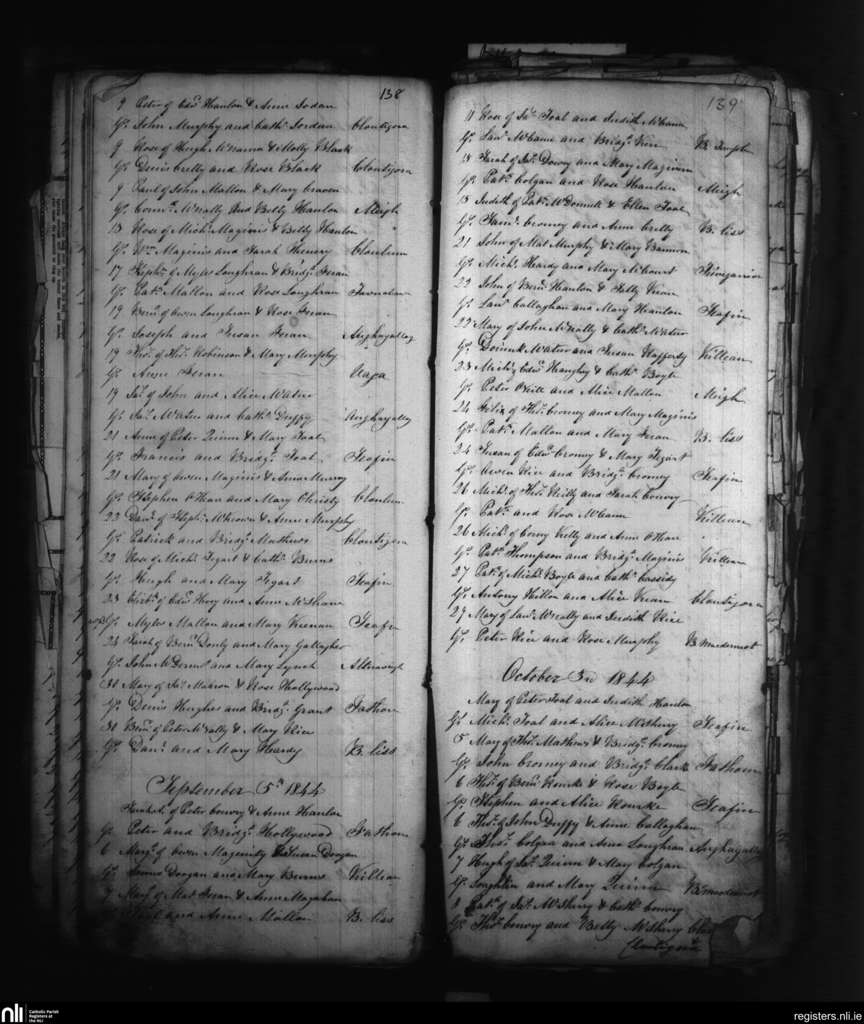 138
9 Peter of Edwd Hanlon & Anne Jordan
Gs. John Murphy and Cathe Jordan Clontigora
9 Rose of Hugh McNamee & Molly Black
Gs. Denis Crelly and Rose Black Clontigora
9 Paul of John Mallon & Mary Craven
Gs. McNally and Betty Hanlon Meigh
13 Rose of Michl Maginis & Betty Hanlon
Gs. Wm Maginis and Sarah Clonlum
17 Steph. of Myles Loughran & Bridgt Feran
Gs. Patk Mallon and Rose Loughran
19 Bernd of Owen Loughran & Rose Feran
Gs. Joseph and Susan Feran Anghayalloy
19 Thos. of Thos. Robinson & Mary Murphy
Gs. Anne Feran
19 Jas. of John and Alice Water
Gs. Jas. Water and Cathe Duffy Anghayalloy
21 Anne of Peter Quinn & Mary Toal
Gs. Francis and Bridgt Toal Seafin
21 Mary of Owen Maginis & Anne Murry
Gs. Stephen OHare and Mary Christy Clonlum
22 Danl of Steph. McKeown & Anne Murphy
Gs. Patrick and Bridgt Mathews Clontigora
22 Rose of Michl Tegart & Cathe Burns
Gs. Hugh and Mary Tegart Seafin
23 of Edwd and Anne McShane
Gs. Myles Mallon and Mary Keenan Seafin
25 Sarah of Bernd Donly and Mary Gallagher
Gs. John McDermt and Mary Lynch
30 Mary of Jas. Mahon & Rose Hollywood
Gs. Denis Hughes and Bridgt Grant Fathom
30 Bernd of Peter McNally & Mary Rice
Gs. Danl and Mary Hardy B. liss
September 5th 1844
Sarah of Peter Conroy & Anne Hanlon
Gs. Peter and Bridgt Hollywood Fathom
6 Margt of Owen Maginity & Susan Doogan
Gs. Doogan and Mary Burns Killean
7 Mary of Mat Feran & Anne Magahan
Toal and Anne Mallon B. liss
139
11 Rose of Jas. Toal and Judith McCann
Gs. Lawr McCann and Bridgt Rice
13 Sarah of Jas. Dowey and Mary Magivern
Gs. Patk Colgan and Rose Hanlon Meigh
13 Judith of Patk McDonnell & Ellen Toal
Gs. Croney and Anne Crelly B. liss
21 John of Mat Murphy & Mary Bannon
Gs. Michl Hardy and Mary McCourt
22 John of Bernd Hanlon & Kelly
Gs. Lawr Callaghan and Mary Hanlon Seafin
22 Mary of John McNally & Cathe Water
Gs. Dominick Water and Susan Rafferty Killean
23 Michl of Edwd Haughey & Cathe Boyle
Gs. Peter ONeill and Alice Mallon Meigh
24 Feliz of Thos. Croney and Mary Maginis
Gs. Patk Mallon and Mary Feran B. liss
24 Susan of Edwd Croney & Mary Tegart
Gs. Owen Rice and Bridgt Croney Seafin
26 Michl of Thos. Reilly and Sarah Conroy
Gs. Patk and Rose McCann Killean
26 Michl of Kelly and Anne OHare
Gs. Patk Thompson and Bridgt Maginis Killean
27 Patk of Michl Boyle and Cathe Cassidy
Gs. Antony Hillon and Alice Clontigora
27 Mary of Lawr McNally and Judith Rice
Gs. Peter Rice and Rose Murphy B. macdermot
October 3rd 1844
Mary of Peter Toal and Judith Hanlon
Gs. Michl Toal and Alice McSherry Seafin
5 Mary of Thos. Mathews & Bridgt Croney
Gs. John Croney and Bridgt Clark Fathom
6 Thos. of Bernd Rourke & Rose Boyle
Gs. Stephen and Alice Rourke Seafin
6 Thos. of John Duffy & Anne Callaghan
Gs. Thos. Colgan and Anne Loughran Anghayalloy
7 Hugh of Jas. Quinn & Mary Colgan
Gs. Loughlin and Mary Quinn B. macdermot
8 Patk of Jas. McSherry & Cathe Conroy
Gs. Thos. Conroy and Betty McSherry
Clontigora
nli
Catholic Parish
Registers at
the NLI
registers.nli.ie